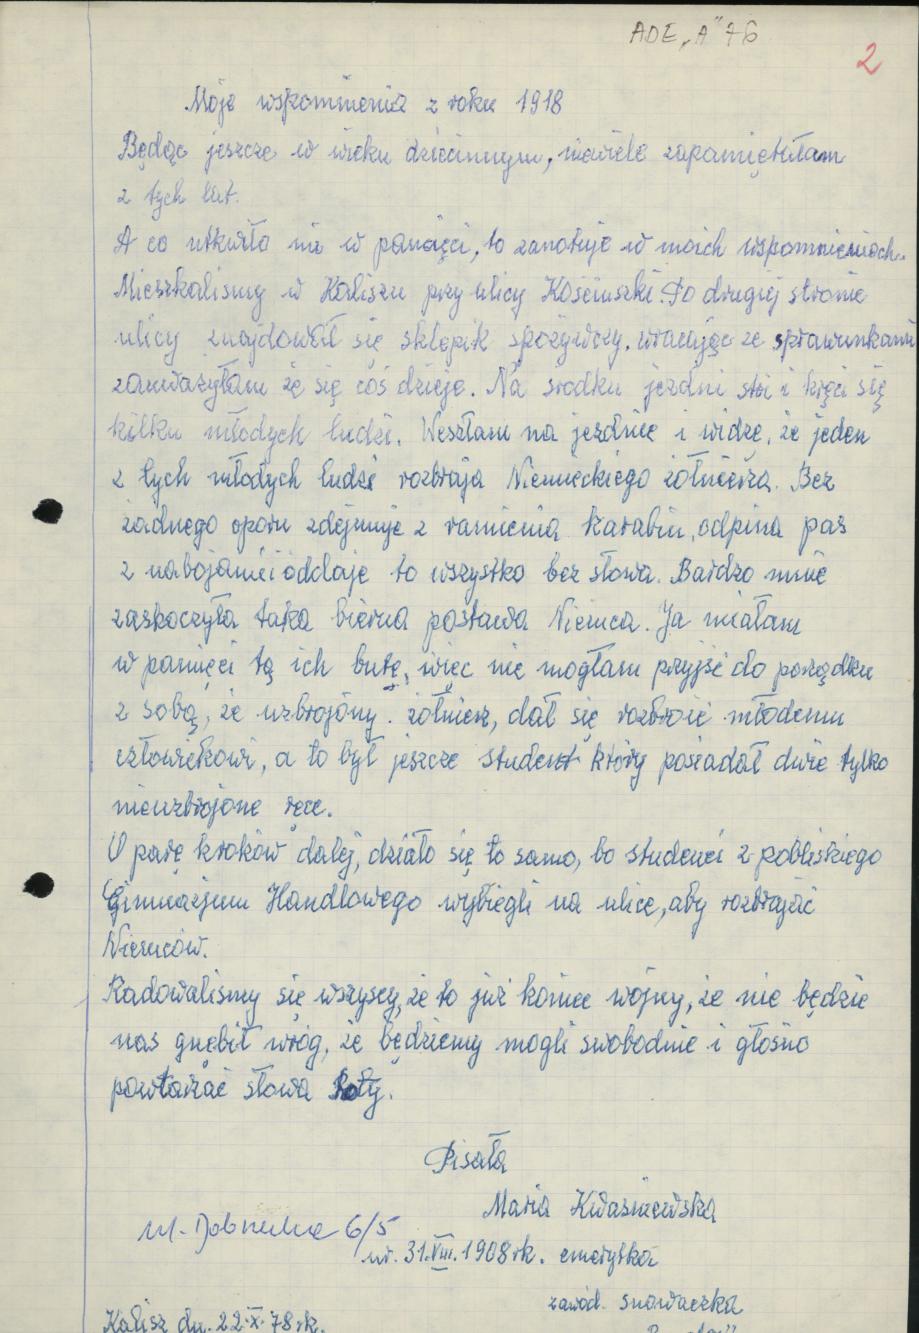 ADE „A" 76
2
Moje wspomnienia z roku 1918
Będąc jeszcze w wieku dziecinnym, niewiele zapamiętałam
z tych lat.
A co utkwiło mi w pamięci, to zanotuje w moich wspomnieniach.
Mieszkalismy w Kaliszu przy ulicy Kościuszki. Po drugiej stronie
ulicy znajdował się sklepik spożywczy, wracając ze sprawunkami
zauważyłam że się coś dzieje. Na środku jezdni stoi i kręci się
kilku młodych ludzi. Weszłam na jezdnie i widzę, że jeden
z tych młodych ludzi rozbraja Niemieckiego żołnierza. Bez
żadnego oporu zdejmuje z ramienia karabin, odpina pas
z nabojami i oddaje to wszystko bez słowa. Bardzo mnie
zaskoczyła taka bierna postawa Niemca. Ja miałam
w pamięci tą ich butę, więc nie mogłam przyjść do porządku
z sobą, że uzbrojony żołnierz, dał się rozbroić młodemu
człowiekowi, a to był jeszcze student który posiadał dwie tylko
nieuzbrojone ręce.
O parę kroków dalej, działo się to samo, bo studenci z pobliskiego
Gimnazjum Handlowego wybiegli na ulice, aby rozbrajać
Niemców.
Radowalismy się wszyscy, że to już koniec wojny, że nie będzie
nas gnębił wróg, że będziemy mogli swobodnie i głośno
powtarzać słowa Roty.
Pisała
Maria Kwaśniewska
ul. 6/5
ur. 31.VIII.1908 rk. emerytka
zawód. snowaczka
Kalisz dn. 22.X.78 rk.